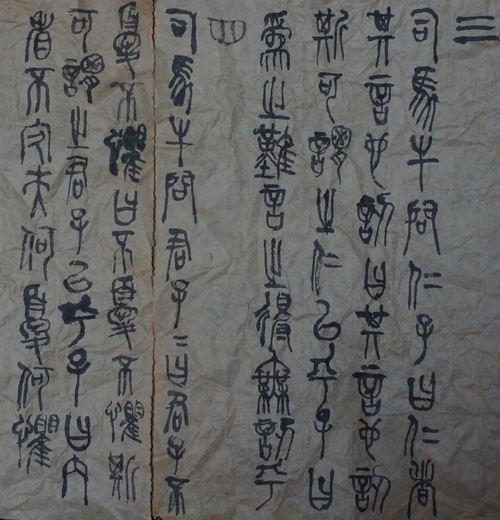 三
司馬牛問仁子曰仁者
其言也訒曰其言也訒
斯可謂之仁已乎子曰
爲之難言之得無訒乎
四
司馬牛問君子〻曰君子不
憂不懼曰不憂不懼斯
可謂之君子已乎子曰內
省不疚夫何憂何懼